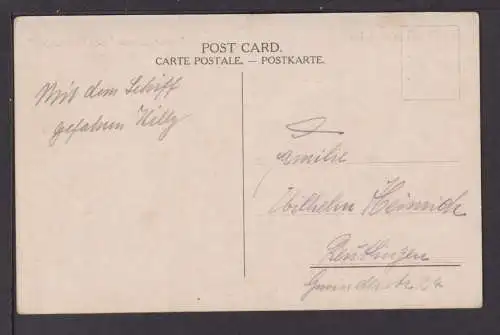 POST CARD.
CARTE POSTALE. — POSTKARTE.
Mit dem Schiff
gefahren Willy
Familie
Wilhelm Heinrich
Reutlingen